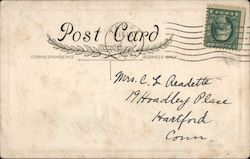 Post Card
CORRESPONDENCE ADDRESS ONLY
Mrs. C. L. Readette
19 Hoadley Place
Hartford
Conn.